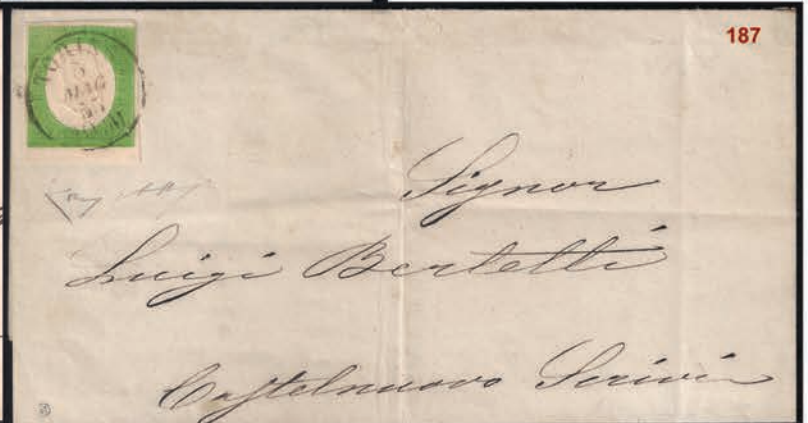 187
TORINO
5
MAG
55
Signor
Luigi Bertelli
Castelnuovo Scrivia